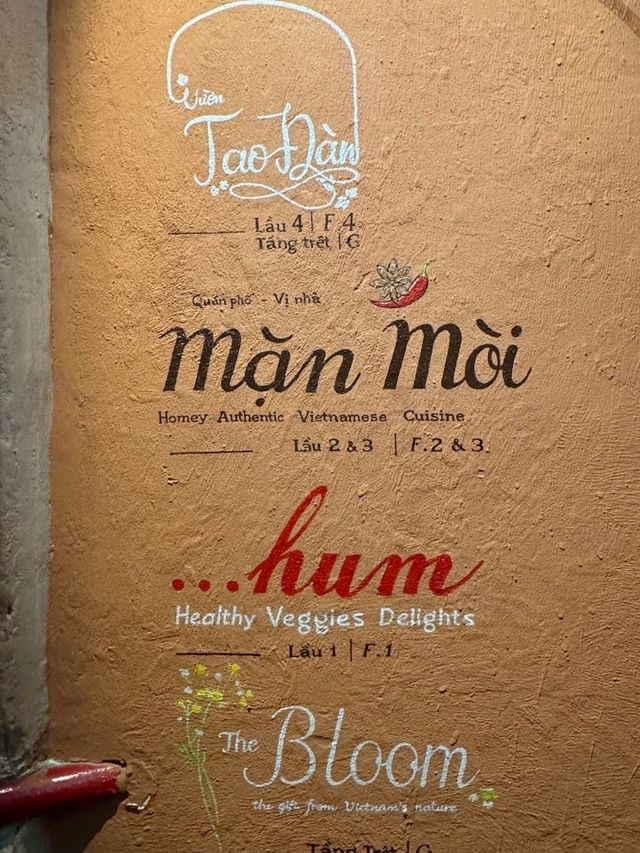 Vườn
Tao Đàn
Lầu 4 | F.4
Tầng trệt | G
Quán phố - Vị nhà
Mặn Mòi
Homey Authentic Vietnamese Cuisine
Lầu 2 & 3 | F.2 & 3
...hum
Healthy Veggies Delights
Lầu 1 | F.1
The Bloom
the gift from Vietnam's nature
Tầng Trệt | G